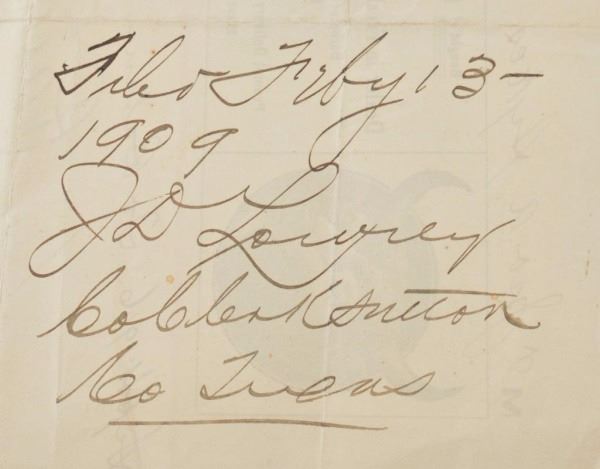 Filed Feby 13-
1909
JD Lowrey
Co Clerk Sutton
Co Texas